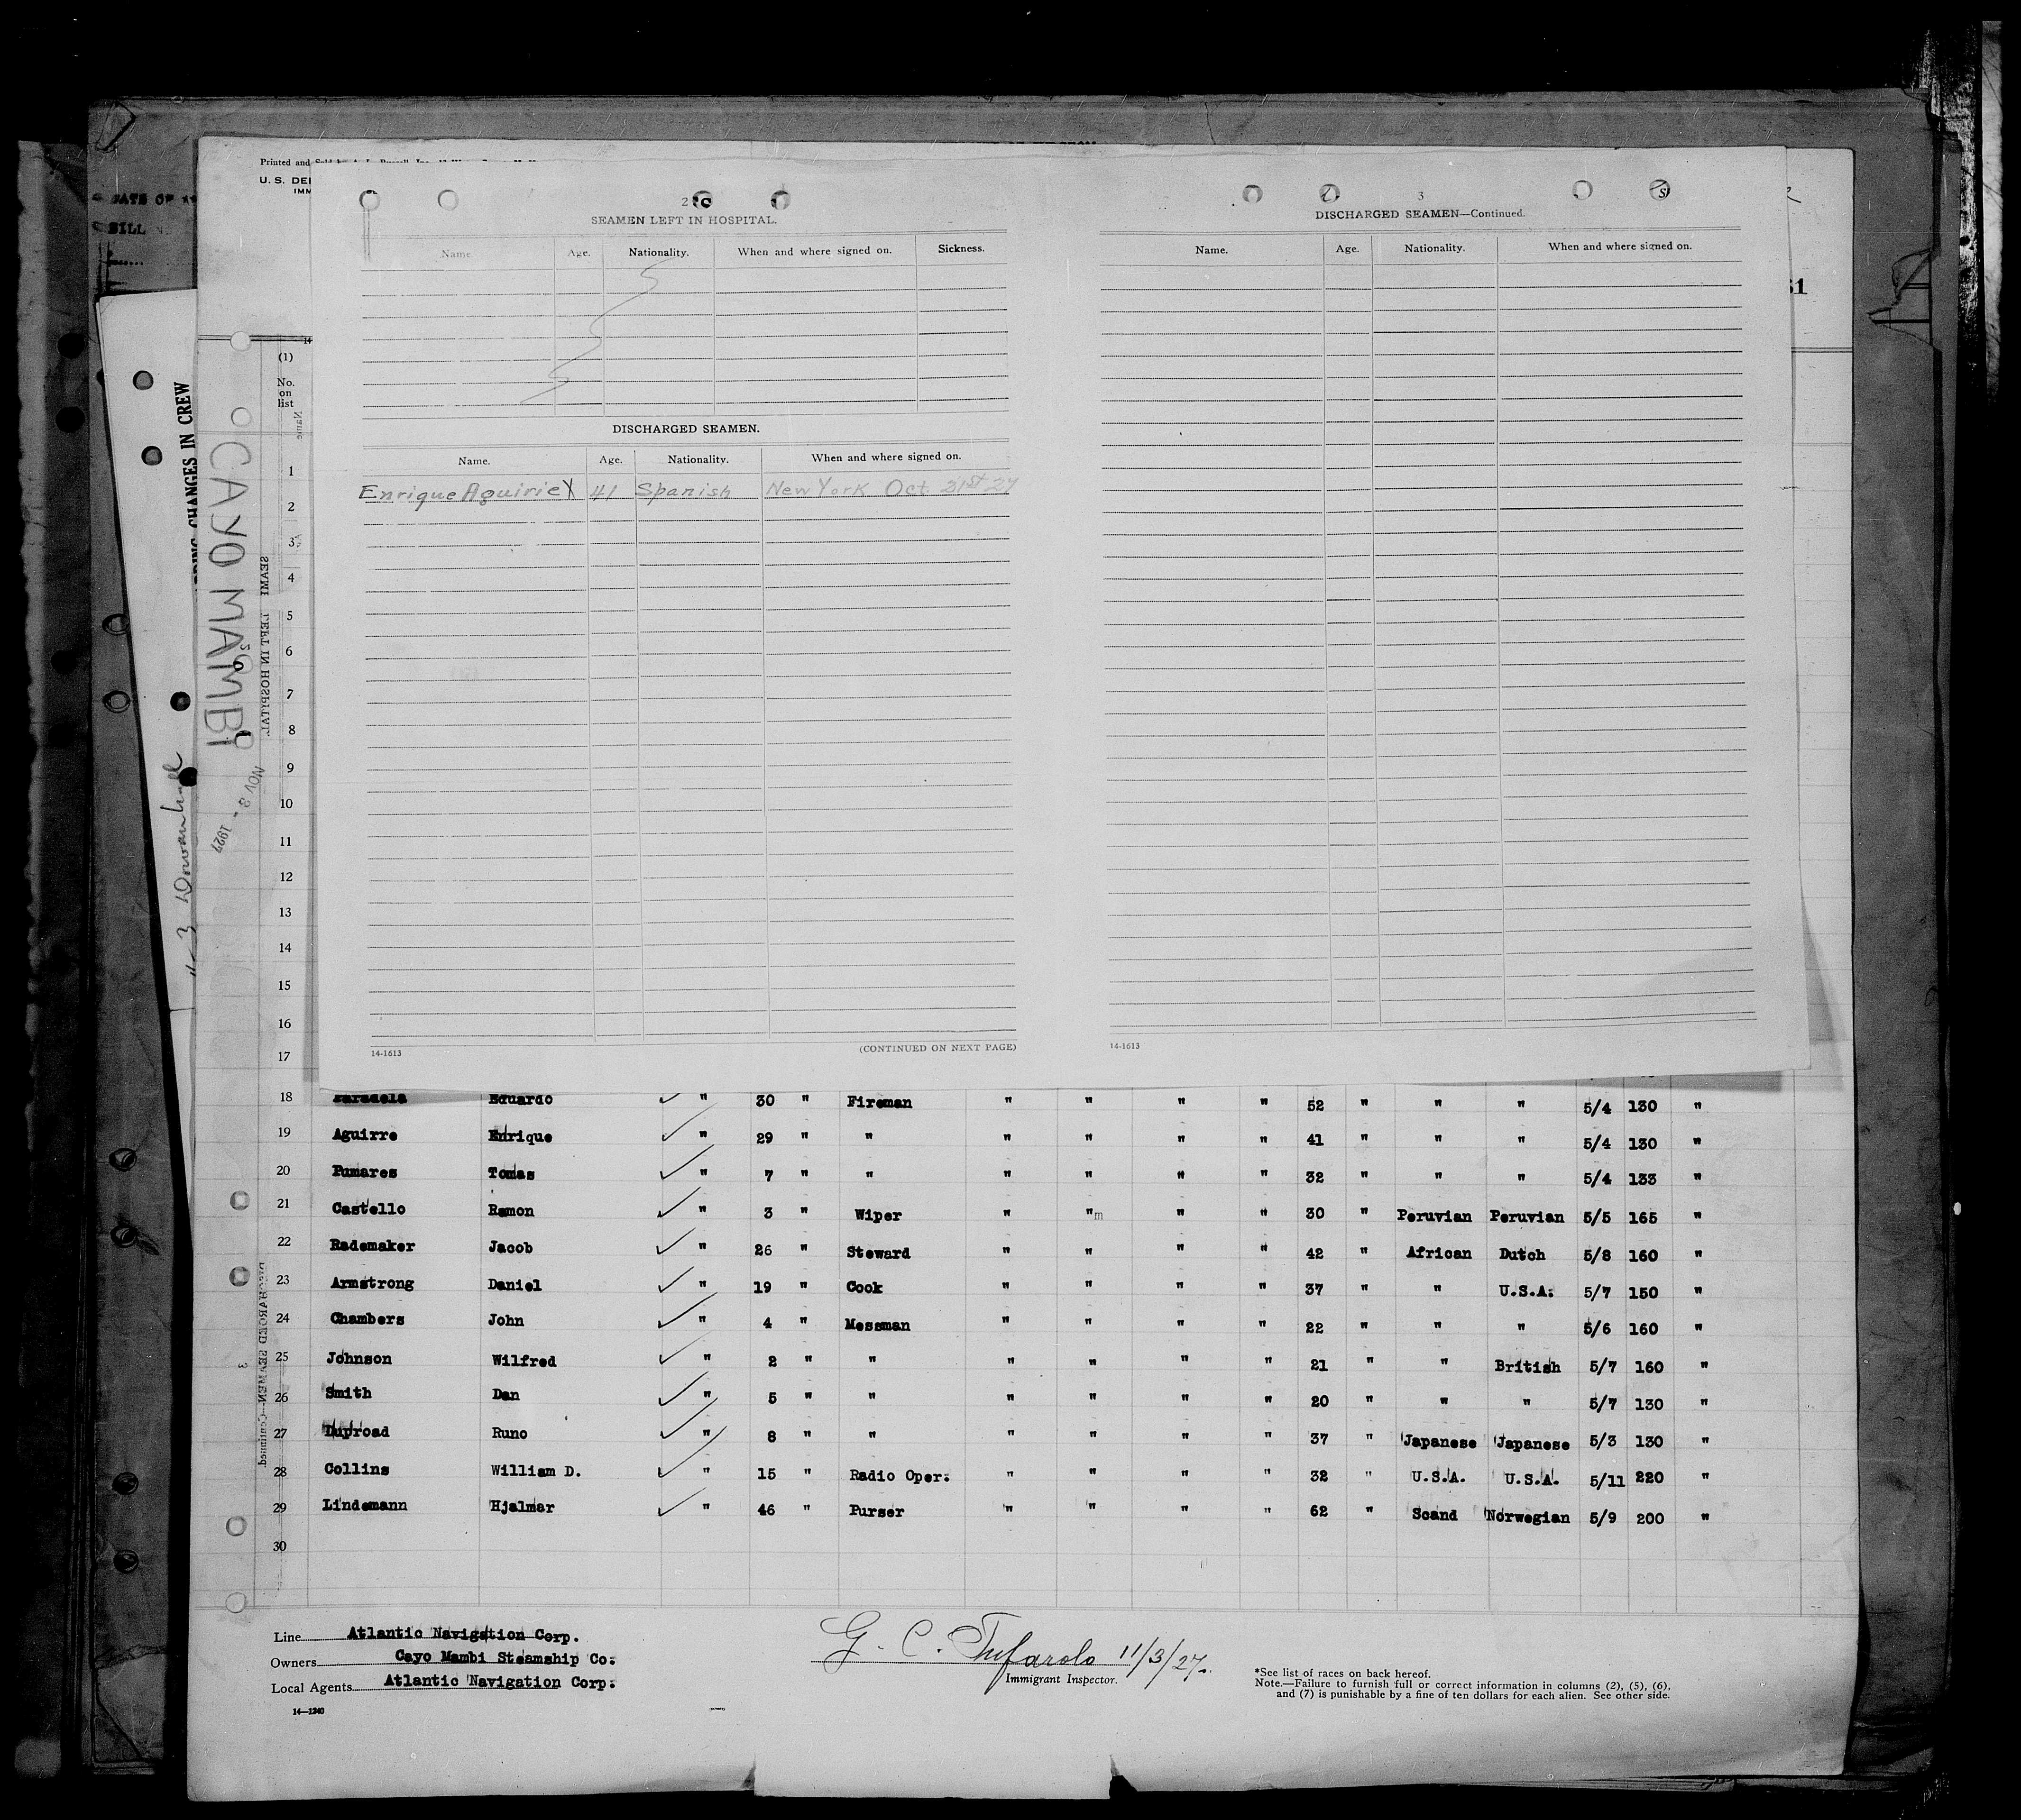 Printed and
U. S. DE
IMM
2
SEAMEN LEFT IN HOSPITAL.
Name. Age. Nationality. When and where signed on. Sickness.
DISCHARGED SEAMEN.
Name. Age. Nationality. When and where signed on.
Enrique Aguirie X 41 Spanish New York Oct. 21st 27
14-1613 (CONTINUED ON NEXT PAGE)
3
DISCHARGED SEAMEN—Continued.
Name. Age. Nationality. When and where signed on.
14-1613
CHANGES IN CREW
CAYO MAMBI
NOV 3 - 1927
(1)
No.
on
list
1
2
3
4
5
6
7
8
9
10
11
12
13
14
15
16
17
18 Eduardo " 30 " Fireman " " " " 52 " " " 5/4 130 "
19 Aguirre Enrique " 29 " " " " " " 41 " " " 5/4 130 "
20 Pumares Tomas " 7 " " " " " " 32 " " " 5/4 133 "
21 Castello Ramon " 3 " Wiper " "m " " 30 " Peruvian Peruvian 5/5 165 "
22 Rademaker Jacob " 26 " Steward " " " " 42 " African Dutch 5/8 160 "
23 Armstrong Daniel " 19 " Cook " " " " 37 " " U.S.A. 5/7 150 "
24 Chambers John " 4 " Messman " " " " 22 " " " 5/6 160 "
25 Johnson Wilfred " 2 " " " " " " 21 " " British 5/7 160 "
26 Smith Dan " 5 " " " " " " 20 " " " 5/7 130 "
27 Duproad Runo " 8 " " " " " " 37 " Japanese Japanese 5/3 130 "
28 Collins William D. " 15 " Radio Oper. " " " " 32 " U.S.A. U.S.A. 5/11 220 "
29 Lindemann Hjalmar " 46 " Purser " " " " 62 " Scand Norwegian 5/9 200 "
30
Line Atlantic Navigation Corp.
Owners Cayo Mambi Steamship Co.
Local Agents Atlantic Navigation Corp.
14—1240
G. C. Tufarolo 11/3/27.
Immigrant Inspector.
*See list of races on back hereof.
Note.—Failure to furnish full or correct information in columns (2), (5), (6),
and (7) is punishable by a fine of ten dollars for each alien. See other side.